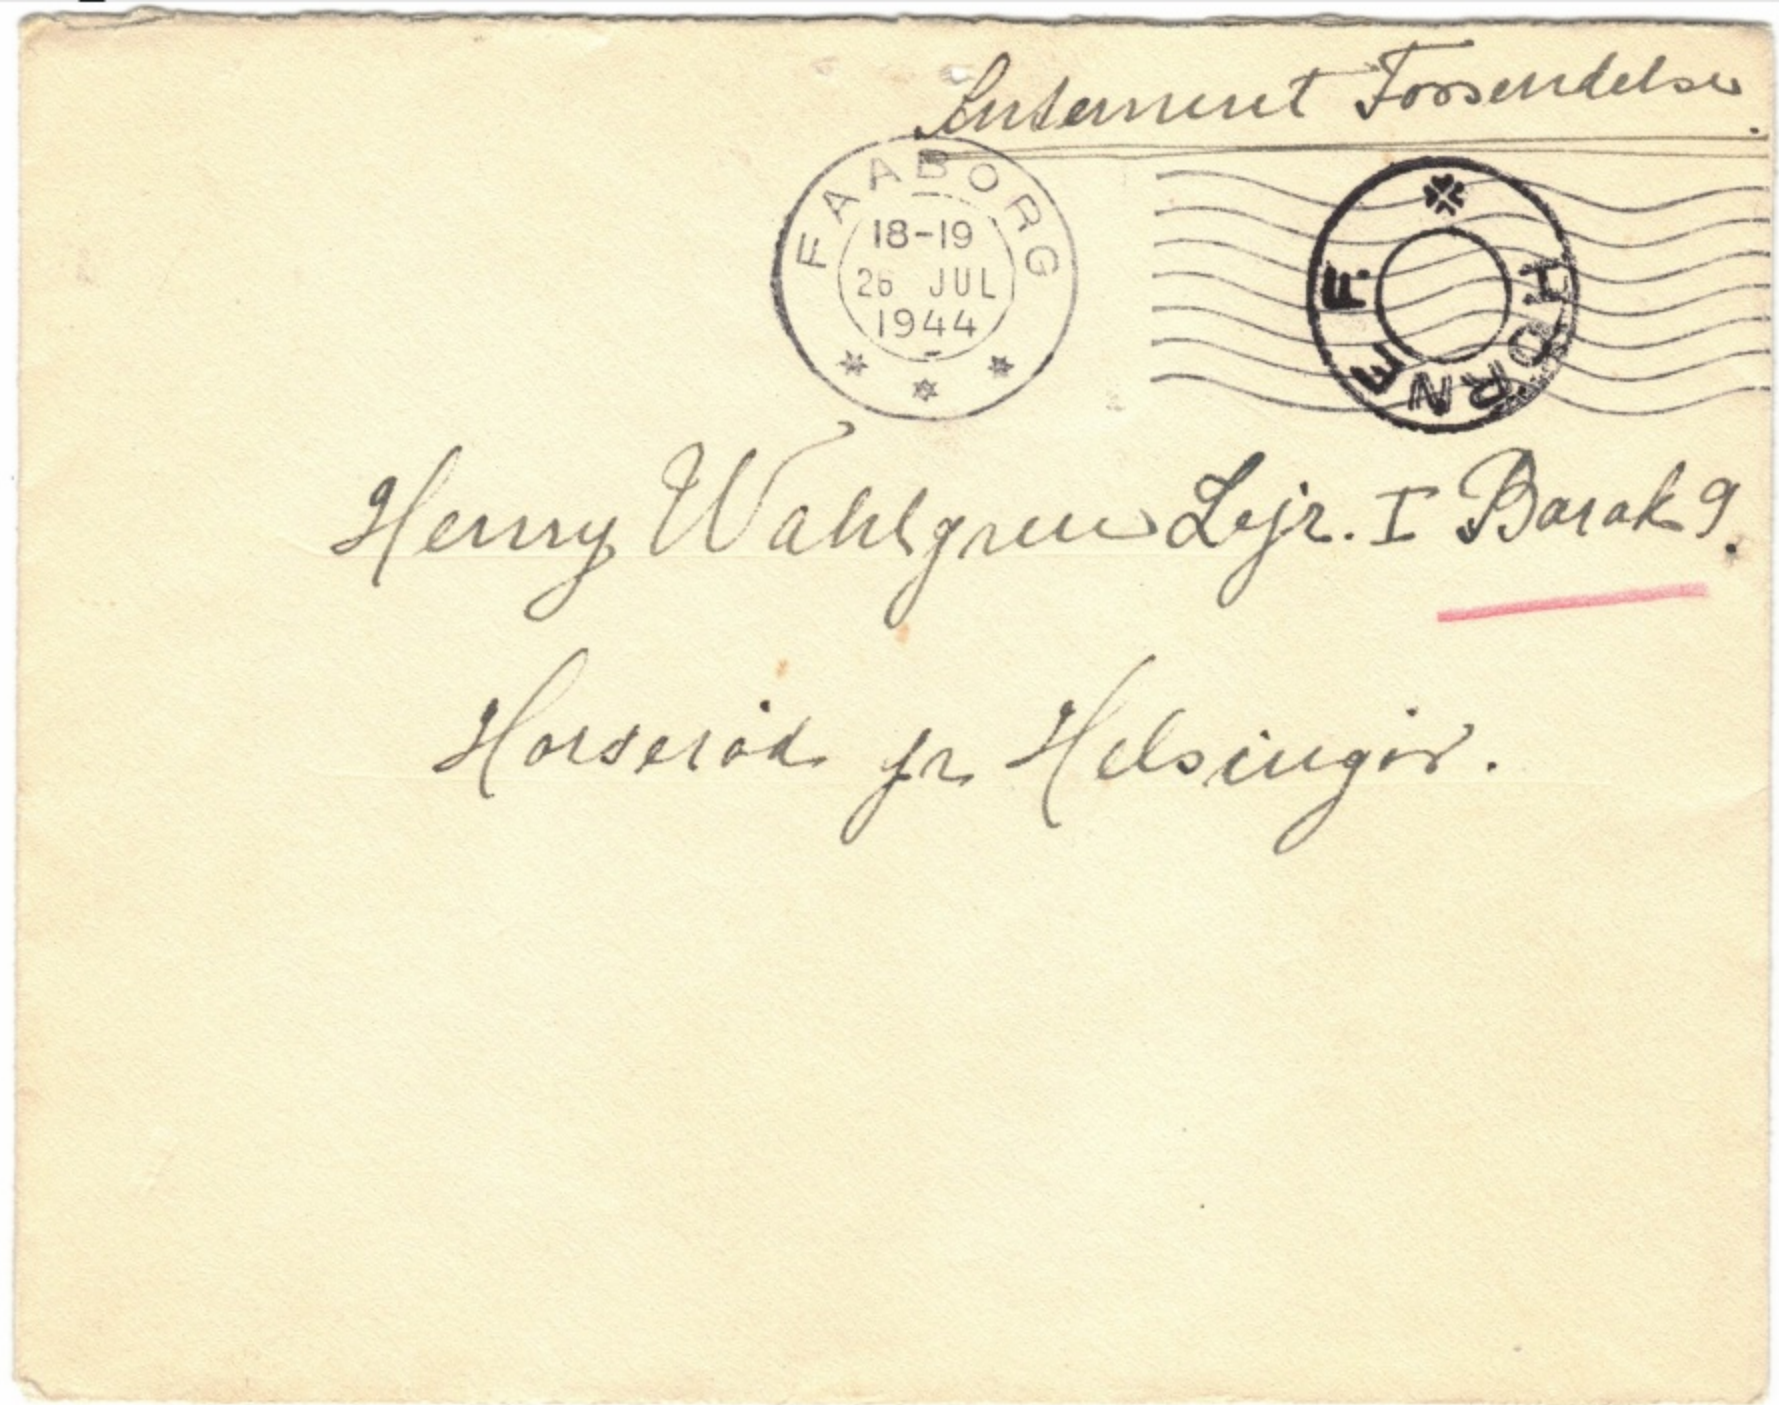 Interneret Forsendelse.
FAABORG
18-19
26 JUL
1944
HORNE F.
Henry Wahlgren Lejr. I Barak 9.
Horserød pr Helsingør.